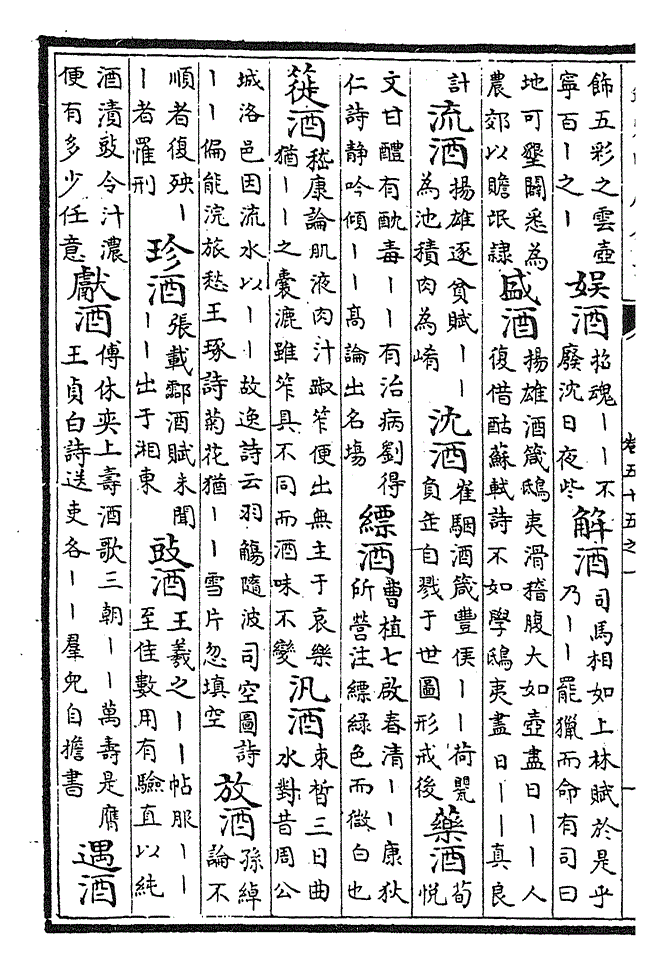 卷五十五之一
飾五彩之雲壺
寧百丨之丨
娱酒
招魂丨丨不
廢沈日夜些
解酒
司馬相如上林賦於是乎
乃丨丨罷獵而命有司曰
地可墾闢悉為
農郊以贍氓隷
盛酒
揚雄酒箴鴟夷滑稽腹大如壺盡日丨丨人
復借酤蘇軾詩不如學鴟夷盡日丨丨真良
計
流酒
揚雄逐貧賦丨丨
為池積肉為崤
沈酒
崔駰酒箴豐侯丨丨荷甖
負缶自戮于世圖形戒後
藥酒
荀
悅
文甘醴有酖毒丨丨有治病劉得
仁詩静吟傾丨丨高論出名塲
縹酒
曹植七啟春清丨丨康狄
所營注縹綠色而微白也
簁酒
嵇康論肌液肉汁踧笮便出無主于哀樂
猶丨丨之囊漉雖笮具不同而酒味不變
汎酒
束晳三日曲
水對昔周公
城洛邑因流水以丨丨故逸詩云羽觴隨波司空圖詩
丨丨偏能浣旅愁王琢詩菊花猶丨丨雪片忽填空
放酒
孫綽
論不
順者復殃丨
丨者罹刑
珍酒
張載酃酒賦未聞
丨丨出于湘東
豉酒
王羲之丨丨帖服丨丨
至佳數用有驗直以純
酒漬豉令汁濃
便有多少任意
獻酒
傅休奕上壽酒歌三朝丨丨萬壽是膺
王貞白詩送吏各丨丨羣兒自擔書
遇酒